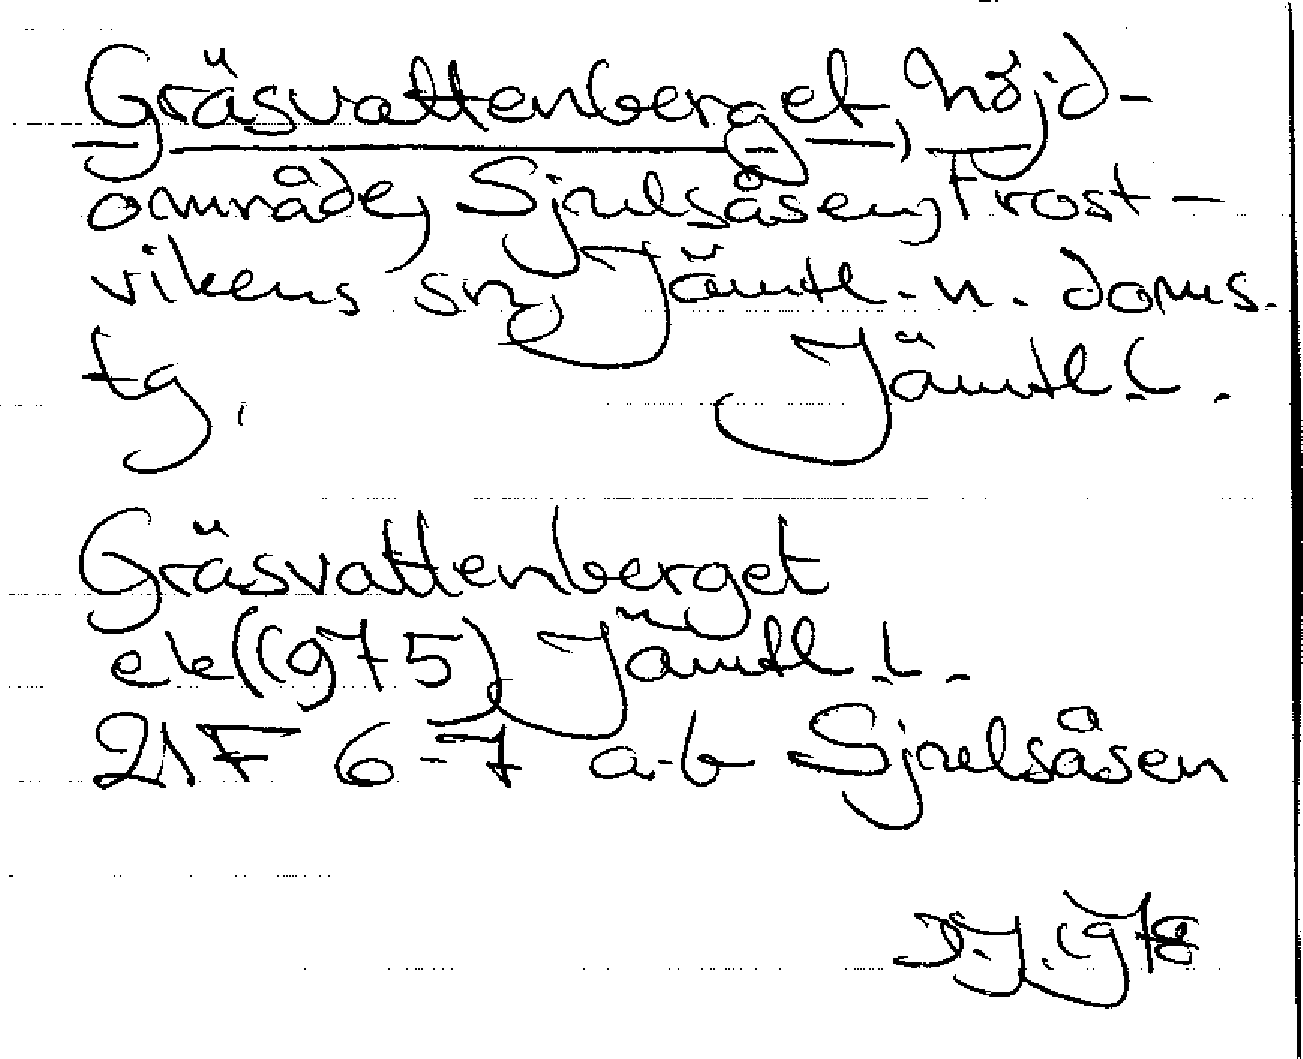 Gräsvattenberget, höjd-
område, Sjulsåsen, Frost-
vikens sn, Jämtl. n. doms.
tg. Jämtl. l.
Gräsvattenberget
ek (1975) Jämtl. l.
21F 6-7 a-b Sjulsåsen
1978